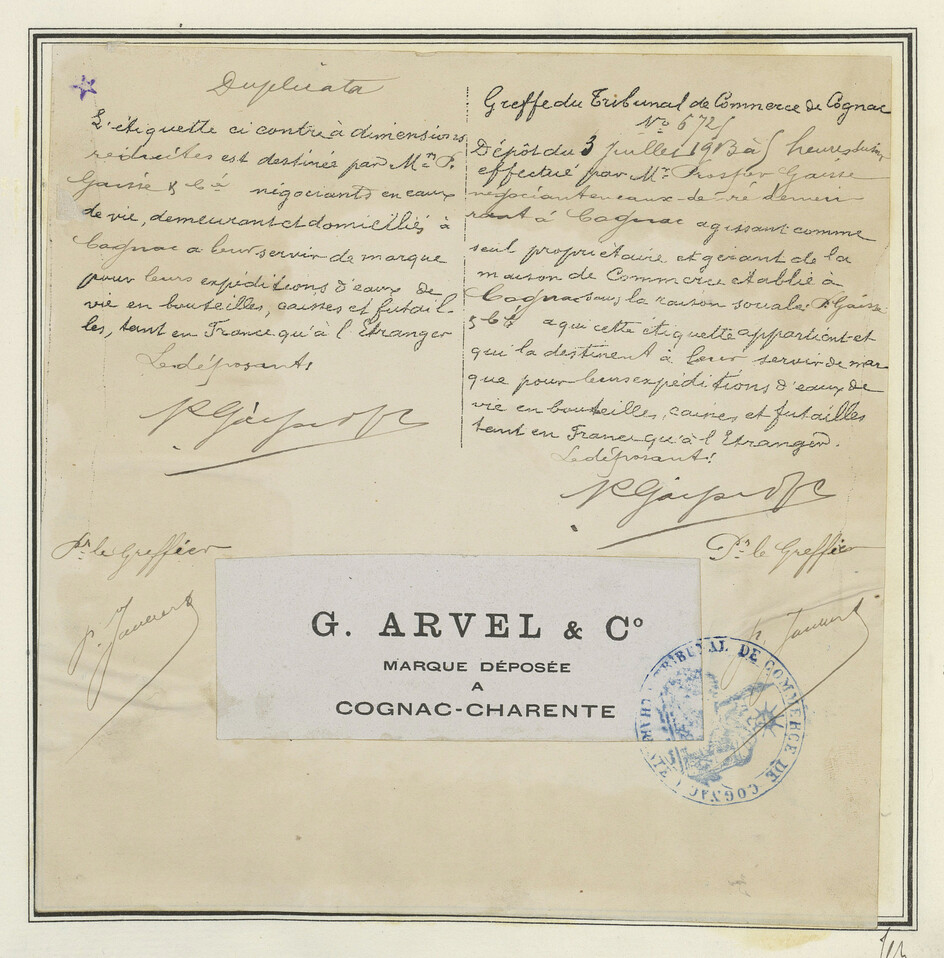 Duplicata
L'étiquette ci contre à dimensions
réduites est destinée par Mrs P.
Gaisse & Cie négociants en eaux
de vie, demeurant et domiciliés à
Cognac a leur servir de marque
pour leurs expéditions d'eaux de
vie en bouteilles, caisses et futail-
les, tant en France qu'à l'Etranger
Le déposant,
Pr le Greffier
Greffe du Tribunal de Commerce de Cognac
No 672
Dépôt du 3 Juillet 1913 à 5 heures du soir
effectué par Mr Prosper Gaisse
négociant en eaux-de-vie demeu-
rant à Cognac agissant comme
seul propriétaire et gérant de la
maison de Commerce établie à
Cognac sous la raison sociale P. Gaisse
& Cie a qui cette étiquette appartient et
qui la destinent à leur servir de mar-
que pour leurs expéditions d'eaux de
vie en bouteilles, caisses et futailles
tant en France qu'à l'Etranger.
Le déposant,
Pr le Greffier
G. ARVEL & Co
MARQUE DÉPOSÉE
A
COGNAC-CHARENTE
TRIBUNAL DE COMMERCE DE COGNAC